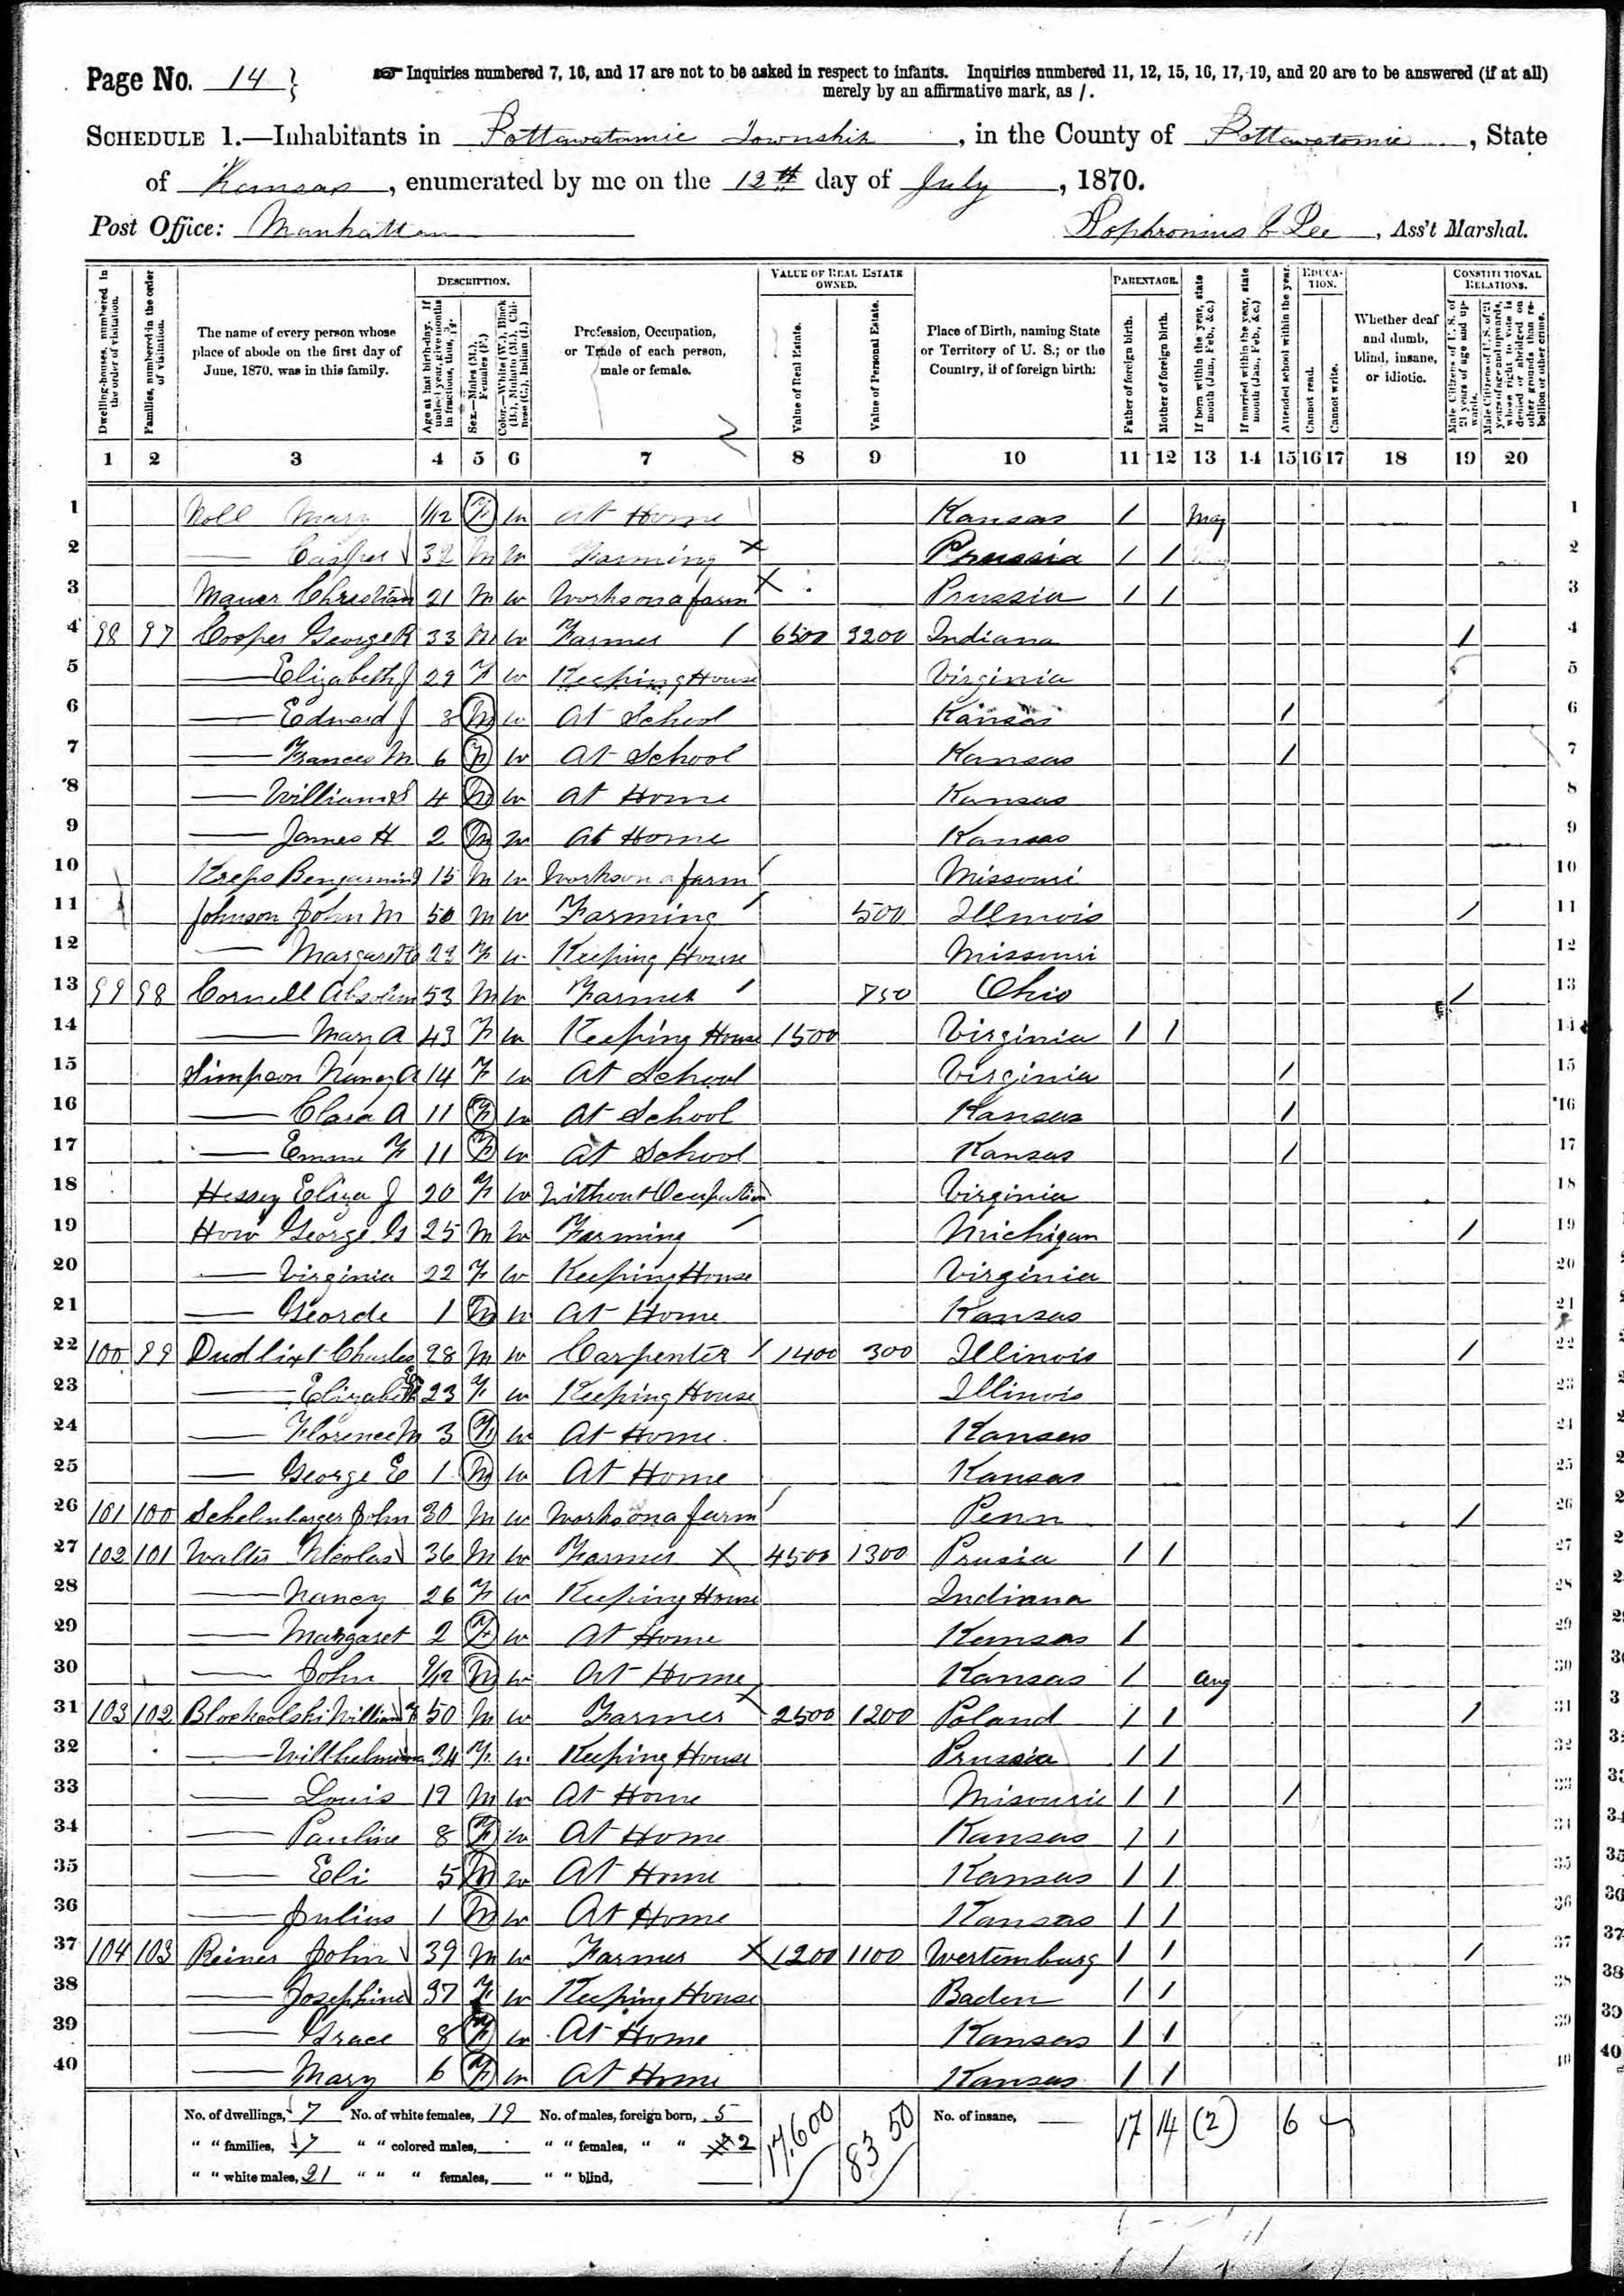 Page No. 14 } ☞ Inquiries numbered 7, 16, and 17 are not to be asked in respect to infants. Inquiries numbered 11, 12, 15, 16, 17, 19, and 20 are to be answered (if at all)
merely by an affirmative mark, as /.
SCHEDULE 1.—Inhabitants in Pottawatomie Township, in the County of Pottawatomie, State
of Kansas, enumerated by me on the 12th day of July, 1870.
Post Office: Manhattan Sophronius C Lee, Ass't Marshal.
Dwelling-houses, numbered in the order of visitation.
Families, numbered in the order of visitation.
The name of every person whose place of abode on the first day of June, 1870, was in this family.
DESCRIPTION.
Age at last birth-day. If under 1 year, give months in fractions, thus, 3/12.
Sex.—Males (M.), Females (F.)
Color.—White (W.), Black (B.), Mulatto (M.), Chinese (C.), Indian (I.)
Profession, Occupation, or Trade of each person, male or female.
VALUE OF REAL ESTATE OWNED.
Value of Real Estate.
Value of Personal Estate.
Place of Birth, naming State or Territory of U. S.; or the Country, if of foreign birth:
PARENTAGE.
Father of foreign birth.
Mother of foreign birth.
If born within the year, state month (Jan., Feb., &c.)
If married within the year, state month (Jan., Feb., &c.)
Attended school within the year.
EDUCATION.
Cannot read.
Cannot write.
Whether deaf and dumb, blind, insane, or idiotic.
CONSTITUTIONAL RELATIONS.
Male Citizens of U. S. of 21 years of age and upwards.
Male Citizens of U. S. of 21 years of age and upwards, whose right to vote is denied or abridged on other grounds than rebellion or other crime.
1 2 3 4 5 6 7 8 9 10 11 12 13 14 15 16 17 18 19 20
1 Noll Mary 1/12 F W At Home Kansas / May 1
2 — Casper 32 M W Farming X Prussia / / 2
3 Mauer Christian 21 M W Works on a farm X Prussia / / 3
4 98 97 Cooper George R 33 M W Farmer / 6500 3200 Indiana / 4
5 — Elizabeth J 29 F W Keeping House Virginia 5
6 — Edward J 8 M W At School Kansas / 6
7 — Frances M 6 F W At School Kansas / 7
8 — William S 4 M W At Home Kansas 8
9 — James H 2 M W At Home Kansas 9
10 Kreps Benjamin 15 M W Works on a farm / Missouri 10
11 Johnson John M 50 M W Farming / 500 Illinois / 11
12 — Margaret 23 F W Keeping House Missouri 12
13 99 98 Cornell Absolem 53 M W Farmer / 750 Ohio / 13
14 — Mary A 43 F W Keeping House 1500 Virginia / / 14
15 Simpson Nancy A 14 F W At School Virginia / 15
16 — Clara A 11 F W At School Kansas / 16
17 — Emma F 11 F W At School Kansas / 17
18 Hessey Eliza J 20 F W Without Ocupation Virginia 18
19 How George G 25 M W Farming / Michigan / 19
20 — Virginia 22 F W Keeping House Virginia 20
21 — Georde 1 M W At Home Kansas 21
22 100 99 Dudlixt Charles 28 M W Carpenter / 1400 300 Illinois / 22
23 — Elizabeth E 23 F W Keeping House Illinois 23
24 — Florence M 3 F W At Home Kansas 24
25 — George E 1 M W At Home Kansas 25
26 101 100 Schelnbarger John 30 M W Works on a farm / Penn / 26
27 102 101 Walter Nicolas 36 M W Farmer X 4500 1300 Prusia / / 27
28 — Nancy 26 F W Keeping House Indiana 28
29 — Margaret 2 F W At Home Kansas / 29
30 — John 9/12 M W At Home Kansas / Aug 30
31 103 102 Blockolski William F 50 M W Farmer X 2500 1200 Poland / / / 31
32 — Willhelmina 34 F W Keeping House Prussia / / 32
33 — Louis 12 M W At Home Misourie / / / 33
34 — Pauline 8 F W At Home Kansas / / 34
35 — Eli 5 M W At Home Kansas / / 35
36 — Julius 1 M W At Home Kansas / / 36
37 104 103 Reiner John 39 M W Farmer X 1200 1100 Wertemburg / / / 37
38 — Josephine 37 F W Keeping House Baden / / 38
39 — Grace 8 F W At Home Kansas / / 39
40 — Mary 6 F W At Home Kansas / / 40
No. of dwellings, 7 No. of white females, 19 No. of males, foreign born, 5 17,600 83 50 No. of insane, — 17 14 (2) 6
" " families, 7 " " colored males, " " females, " " 2
" " white males, 21 " " " females, " " blind,